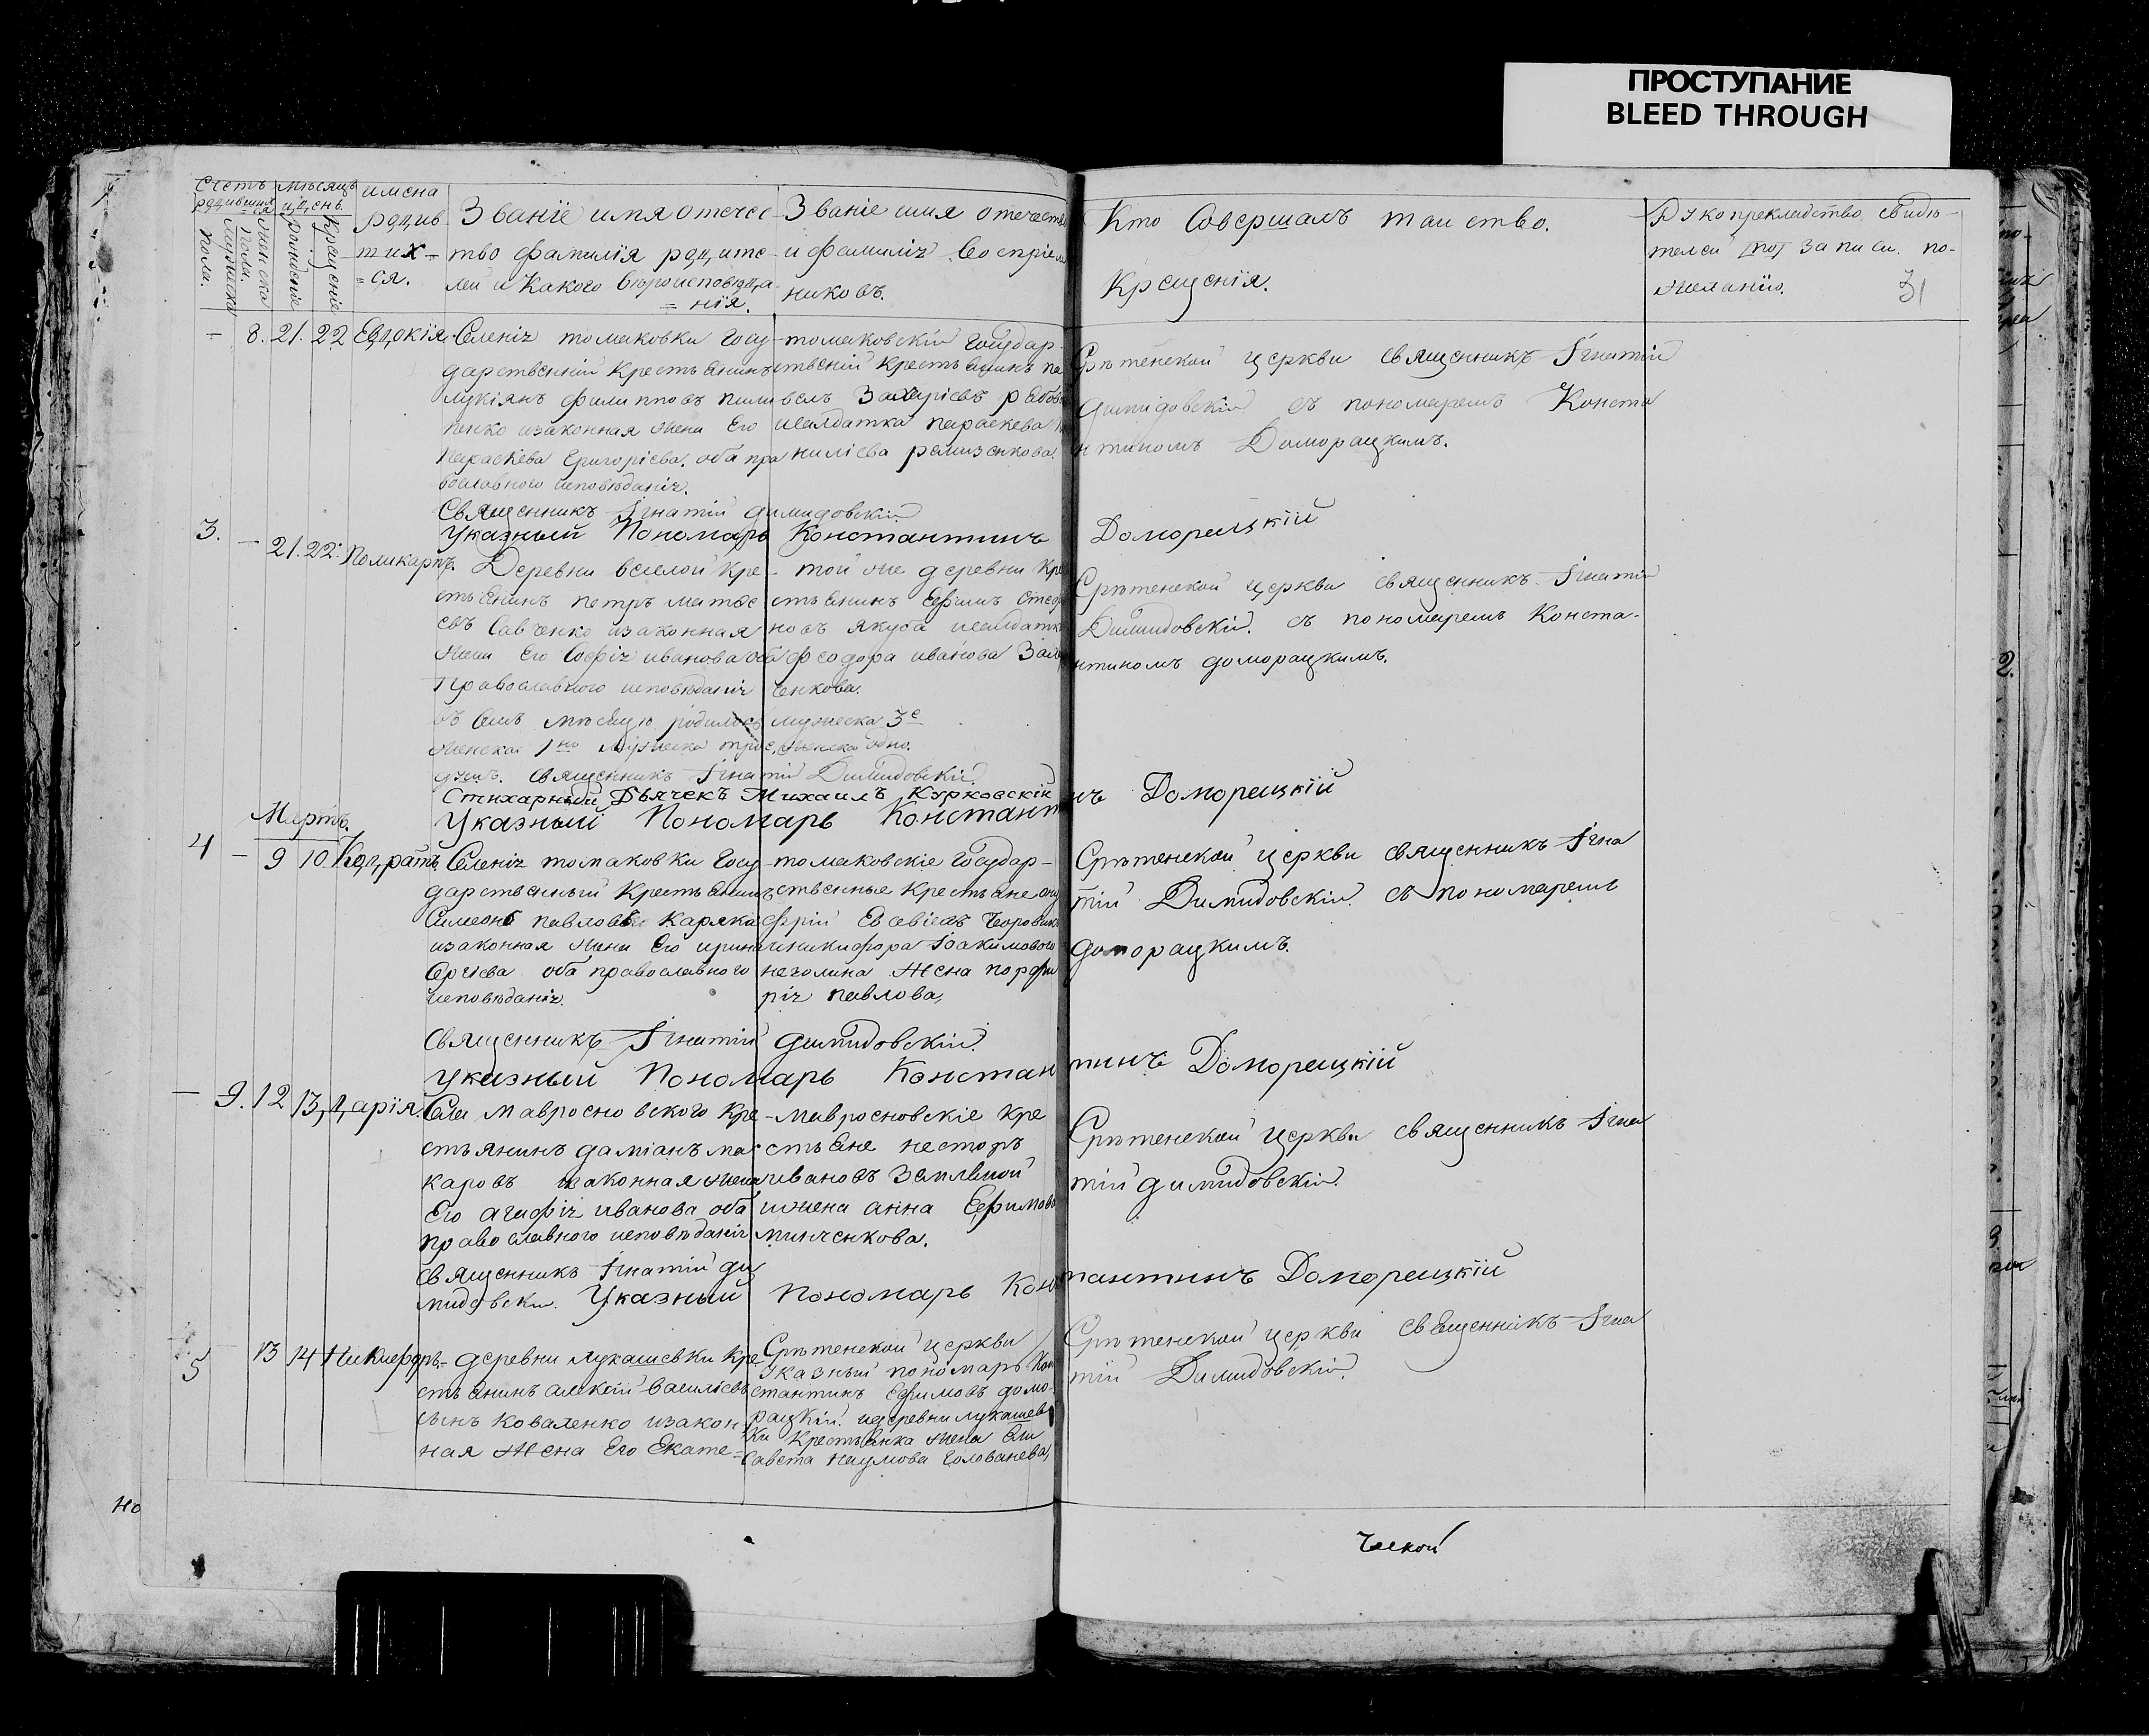 ПРОСТУПАНИЕ
BLEED THROUGH
Счетъ родившихся
мужеска пола.
женска пола.
Мѣсяцъ и день
рожденiе
Крещенiе
имена родив шихся.
Званiе имя отечество фамилiя родителей и какого вѣроисповѣданiя.
Званiе имя отечество и фамилiя воспрiемниковъ.
Кто Совершалъ таинство Крещенiя.
Рукоприкладство свидѣтелей записи по желанiю.
31
8. 21. 22 Евдокiя
Селенiя томаковки Госу-
дарственнiй Крестьянинъ
лукiянъ филипповъ пили
пенко изаконная жена Его
Параскева Григорiева. оба пра
вославного исповѣданiя.
томаковскiй Государ-
ственнiй Крестьянинъ па
велъ Захарiевъ
исалдатка параскева
Срѣтенской церкви священникъ Iгнатiй
Димидовскiй съ пономаремъ Конста
нтиномъ Доморацкимъ.
Священникъ Iгнатiй димидовскiй
Указный Пономарь Константинъ Доморецкiй
3. — 21. 22. Поликарпъ.
Деревни веселой Кре-
стьянинъ петръ матве
евъ Савченко изаконная
жена Его Софiя иванова оба
Православного исповѣданiя
той же деревни кре
стьянинъ Ефимъ
новъ якуба исалдатка
феодора иванова
ченкова.
Срѣтенской церкви священникъ Iгнатiй
Димидовскiй. съ пономаремъ Конста-
нтиномъ доморацкимъ.
въ семъ мѣсяцѣ родилось мужеска 3е
женска 1но мужеска трое, женска одно.
душъ. священникъ Iгнатiй Димидовскiй
Стихарный Дьячекъ Михаилъ Курковскiй
Указный Пономарь Константинъ Доморецкiй
Мартъ.
4 — 9 10. Кодратъ.
Селенiя томаковки Госу-
дарственный Крестьянинъ
Симеонъ павловъ Каряка
изаконная жена Его ирина
Сргiева оба православного
исповѣданiя.
томаковскiе Государ-
ственные Крестьяне ону
фрiй Евсевiевъ
иникифора Iоакимового
жена порфи
рiя павлова,
Срѣтенской церкви священникъ Iгна
тiй Димидовскiй. съ пономаремъ
доморацкимъ.
Священникъ Iгнатiй димидовскiй.
Указный Пономарь Константинъ Доморецкiй
— 9. 12 13, Дарiя.
Села мавросновского Кре-
стьянинъ дамiанъ ма
каровъ изаконная жена
Его агафiя иванова оба
православного исповѣданiя
мавросновскiе кре
стьяне несторъ
ивановъ Земляной
ижена анна Ефимова
минченкова.
Срѣтенской церкви священникъ Iгна
тiй димидовскiй.
священникъ Iгнатiй ди
мидовскiй. Указный Пономарь Константинъ Доморецкiй
5 — 13 14 Никифоръ
деревни лукашевки Кре-
стьянинъ алексiй василiевъ
сынъ Коваленко изакон
ная Жена Его Екате=
Срѣтенской церкви
Указный пономарь Кон
стантинъ Ефимовъ домо-
рацкiй. идеревни лукашев
ки Крестьянка жена Ели
савета наумова Голованева,
Срѣтенской церкви священникъ Iгна
тiй Димидовскiй.
но
ческой